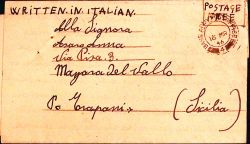 WRITTEN.IN ITALIAN.
POSTAGE
FREE
Alla Signora
Anna
Via Pisa. 3.
Mazara del Vallo
Po Trapani.
(Sicilia)